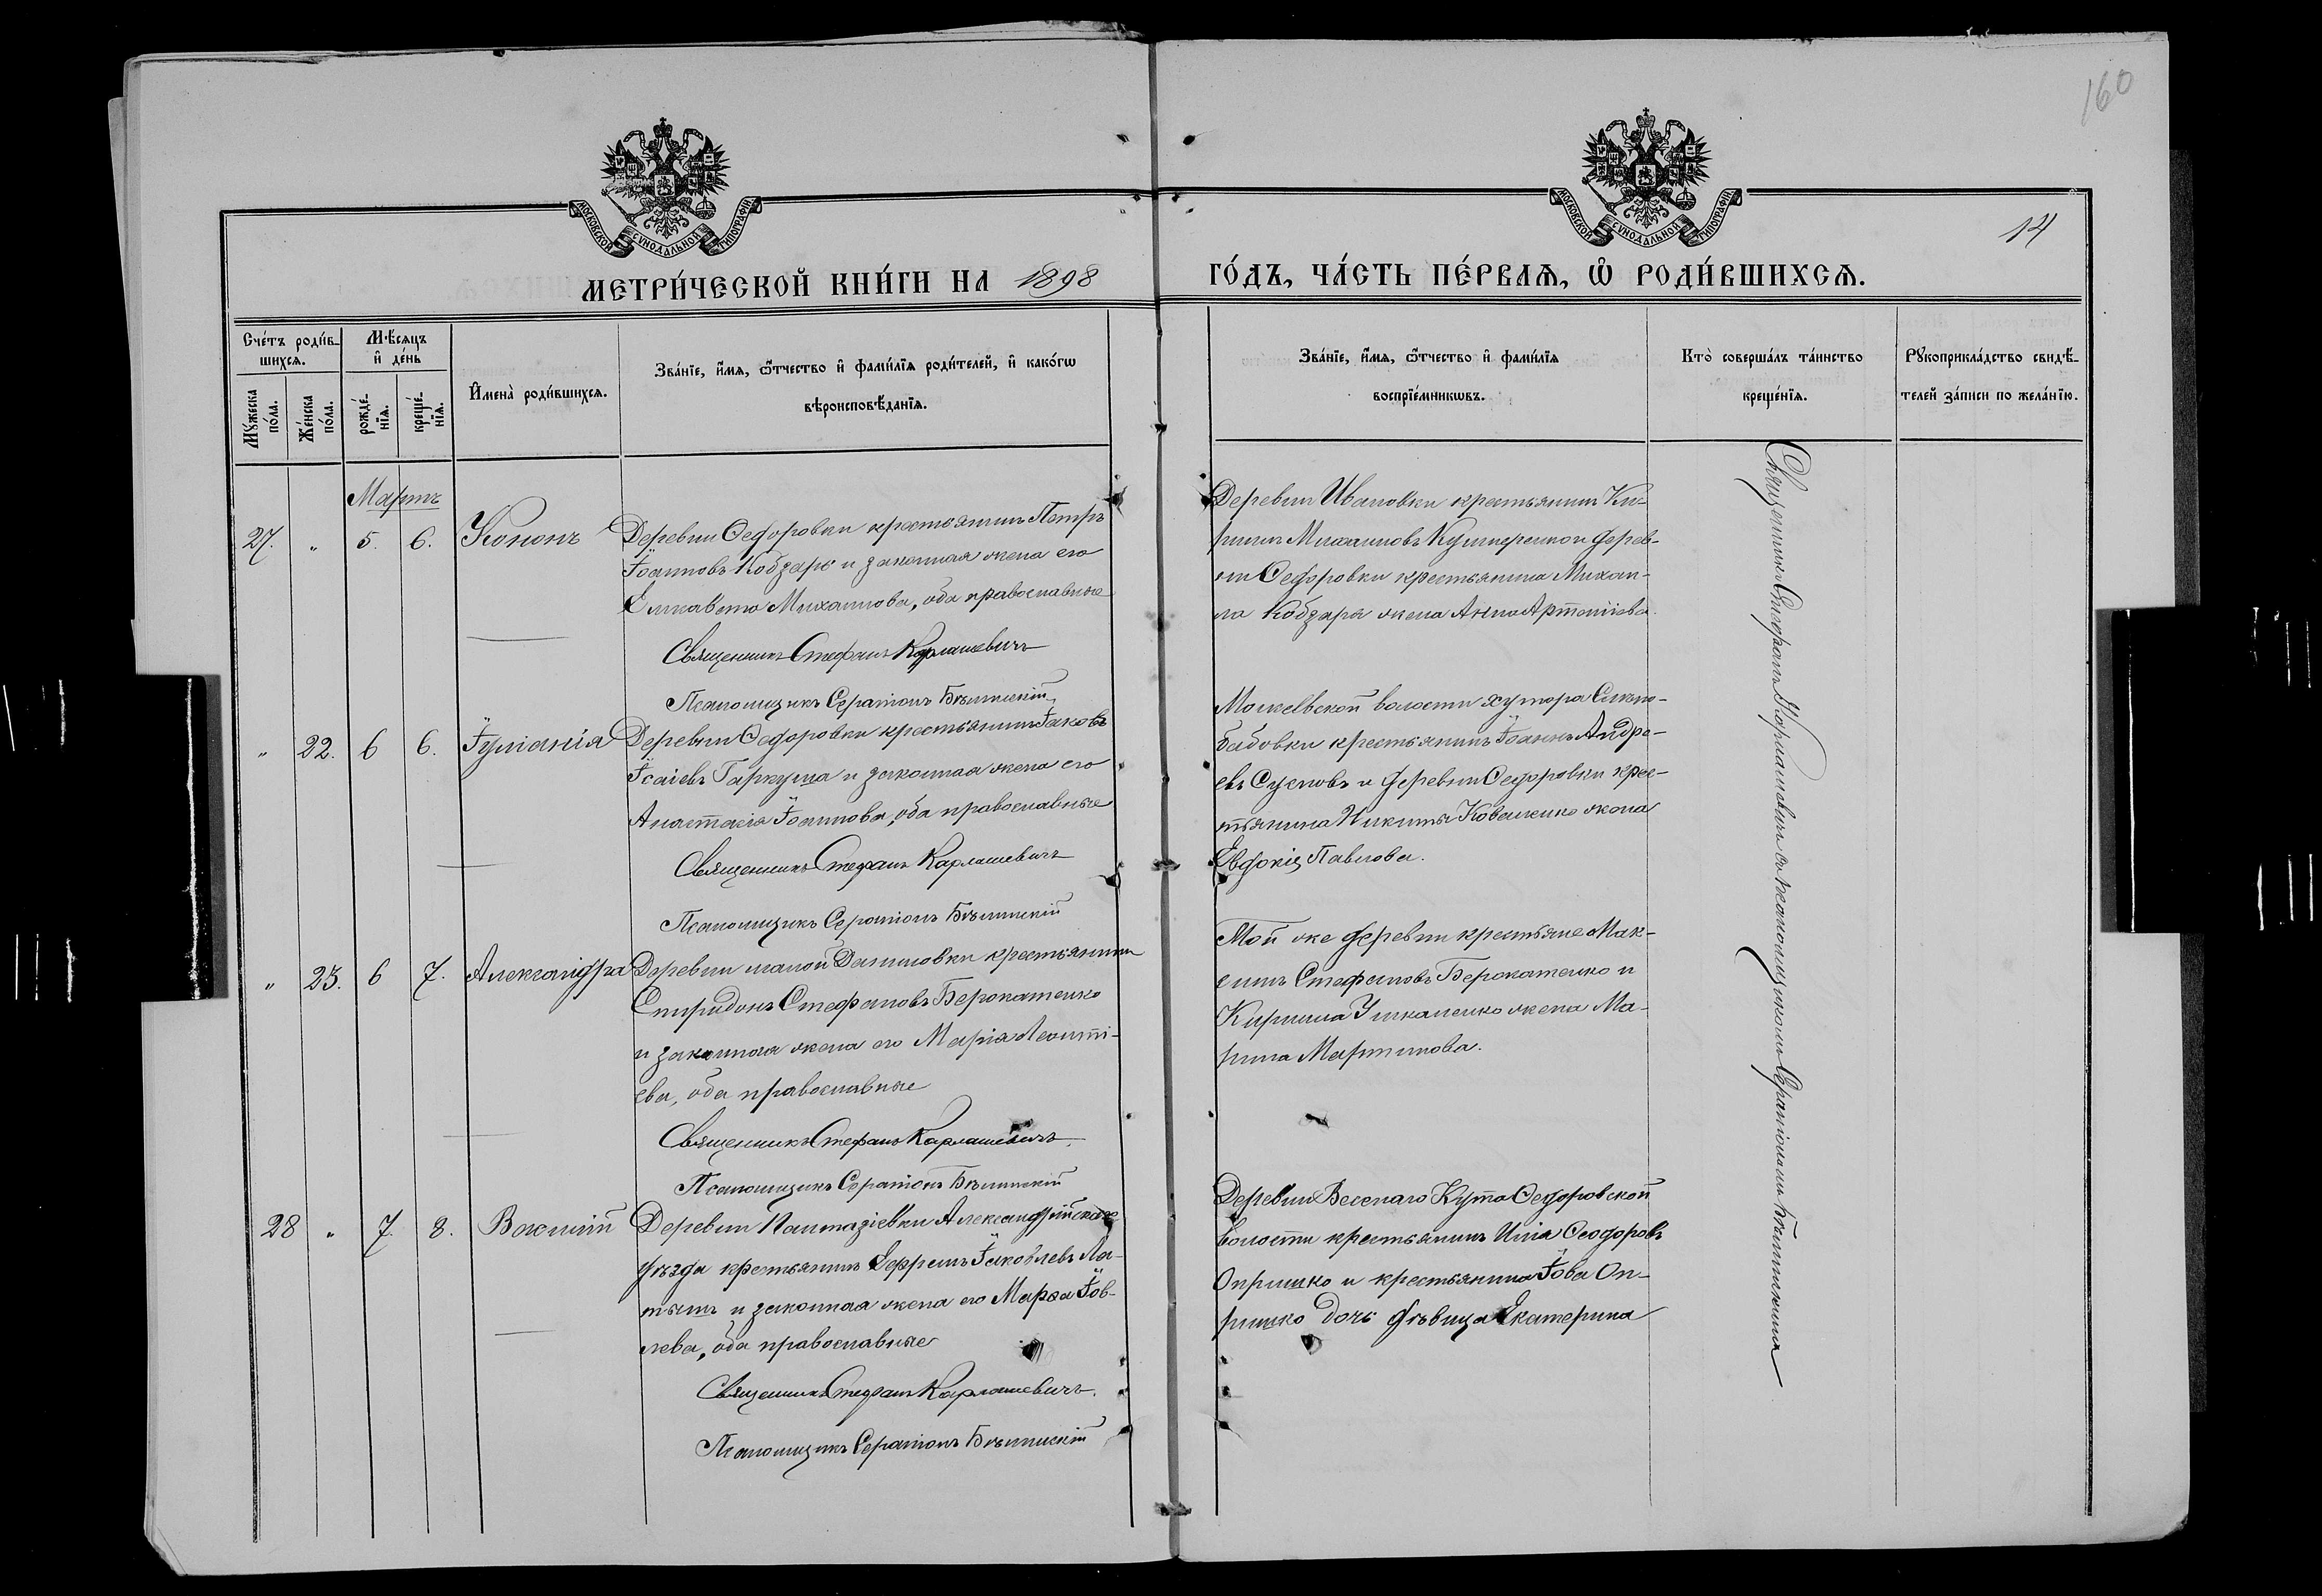 160
МОСКОВСКОЙ СѴНОДАЛЬНОЙ ТИПОГРАФІИ
МОСКОВСКОЙ СѴНОДАЛЬНОЙ ТИПОГРАФІИ
14
МЕТРИ́ЧЕСКОЙ КНИ́ГИ НА 1898
ГО́ДЪ, ЧА́СТЬ ПЕ́РВАѦ, Ѽ РОДИ́ВШИХСѦ.
Сче́тъ роди́в-
шихсѧ.
Мꙋ́жеска
по́ла.
Же́нска
по́ла.
Мѣ́сѧцъ
и҆ де́нь
рожде́-
нїѧ.
креще́-
нїѧ.
И҆мена̀ роди́вшихсѧ.
Зва́нїе, и҆́мѧ, ѻ҆́тчество и҆ фами́лїѧ роди́телей, и҆ како́гѡ
вѣроисповѣ́данїѧ.
Зва́нїе, и҆́мѧ, ѻ҆́тчество и҆ фами́лїѧ
воспрїе́мникѡвъ.
Кто̀ соверша́лъ та́инство
креще́нїѧ.
Рꙋкоприкла́дство свидѣ́-
телей за́писи по жела́нїю.
Мартъ
27. " 5. 6. Кононъ
Деревни Ѳедоровки крестьянинъ Петръ
Іоанновъ Кобзарь и законная жена его
Елисавета Михаилова, оба православные
Священникъ Стефанъ Карлашевичъ
Псаломщикъ Серапіонъ Бѣлинскій
Деревни Ивановки крестьянинъ Ки-
риллъ Михаиловъ Кушперенко и дерев-
ни Ѳедоровки крестьянина Михаи-
ла Кобзаря жена Анна Артеміева.
" 22. 6 6. Іуліанія
Деревни Ѳедоровки крестьянинъ Іаковъ
Ісаіевъ Гаркуша и законная жена его
Анастасія Іоаннова, оба православные
Священникъ Стефанъ Карлашевичъ
Псаломщикъ Серапіонъ Бѣлинскій
волости хутора
бабовки крестьянинъ Іоаннъ Андре-
евъ Сусловъ и деревни Ѳедоровки крес-
тьянина Никиты Коваленко жена
Евдокія Павлова.
" 23. 6 7. Александра
Деревни малой Даниловки крестьянинъ
Спиридонъ Стефановъ Берокатенко
и законная жена его Марія Леонті-
ева, оба православные
Священникъ Стефанъ Карлашевичъ.
Псаломщикъ Серапіонъ Бѣлинскій
Той же деревни крестьяне Мак-
симъ Стефановъ Берокатенко и
Кирилла Ушкаленко жена Ма-
рина Мартинова.
28 " 7. 8. Василій
Деревни Пантазіевки Александрійскаго
уѣзда крестьянинъ Ефремъ Іаковлевъ Ла-
тышъ и законная жена его Марѳа Іов-
лева, оба православные
Священникъ Стефанъ Карлашевичъ.
Псаломщикъ Серапіонъ Бѣлинскій
Деревни Веселаго Кута Ѳедоровской
волости крестьянинъ Илія Ѳеодоровъ
Опришко и крестьянина Іова Оп-
ришко дочь дѣвица Екатерина
Священникъ Стефанъ Карлашевичъ съ псаломщикомъ Серапіономъ Бѣлинскимъ